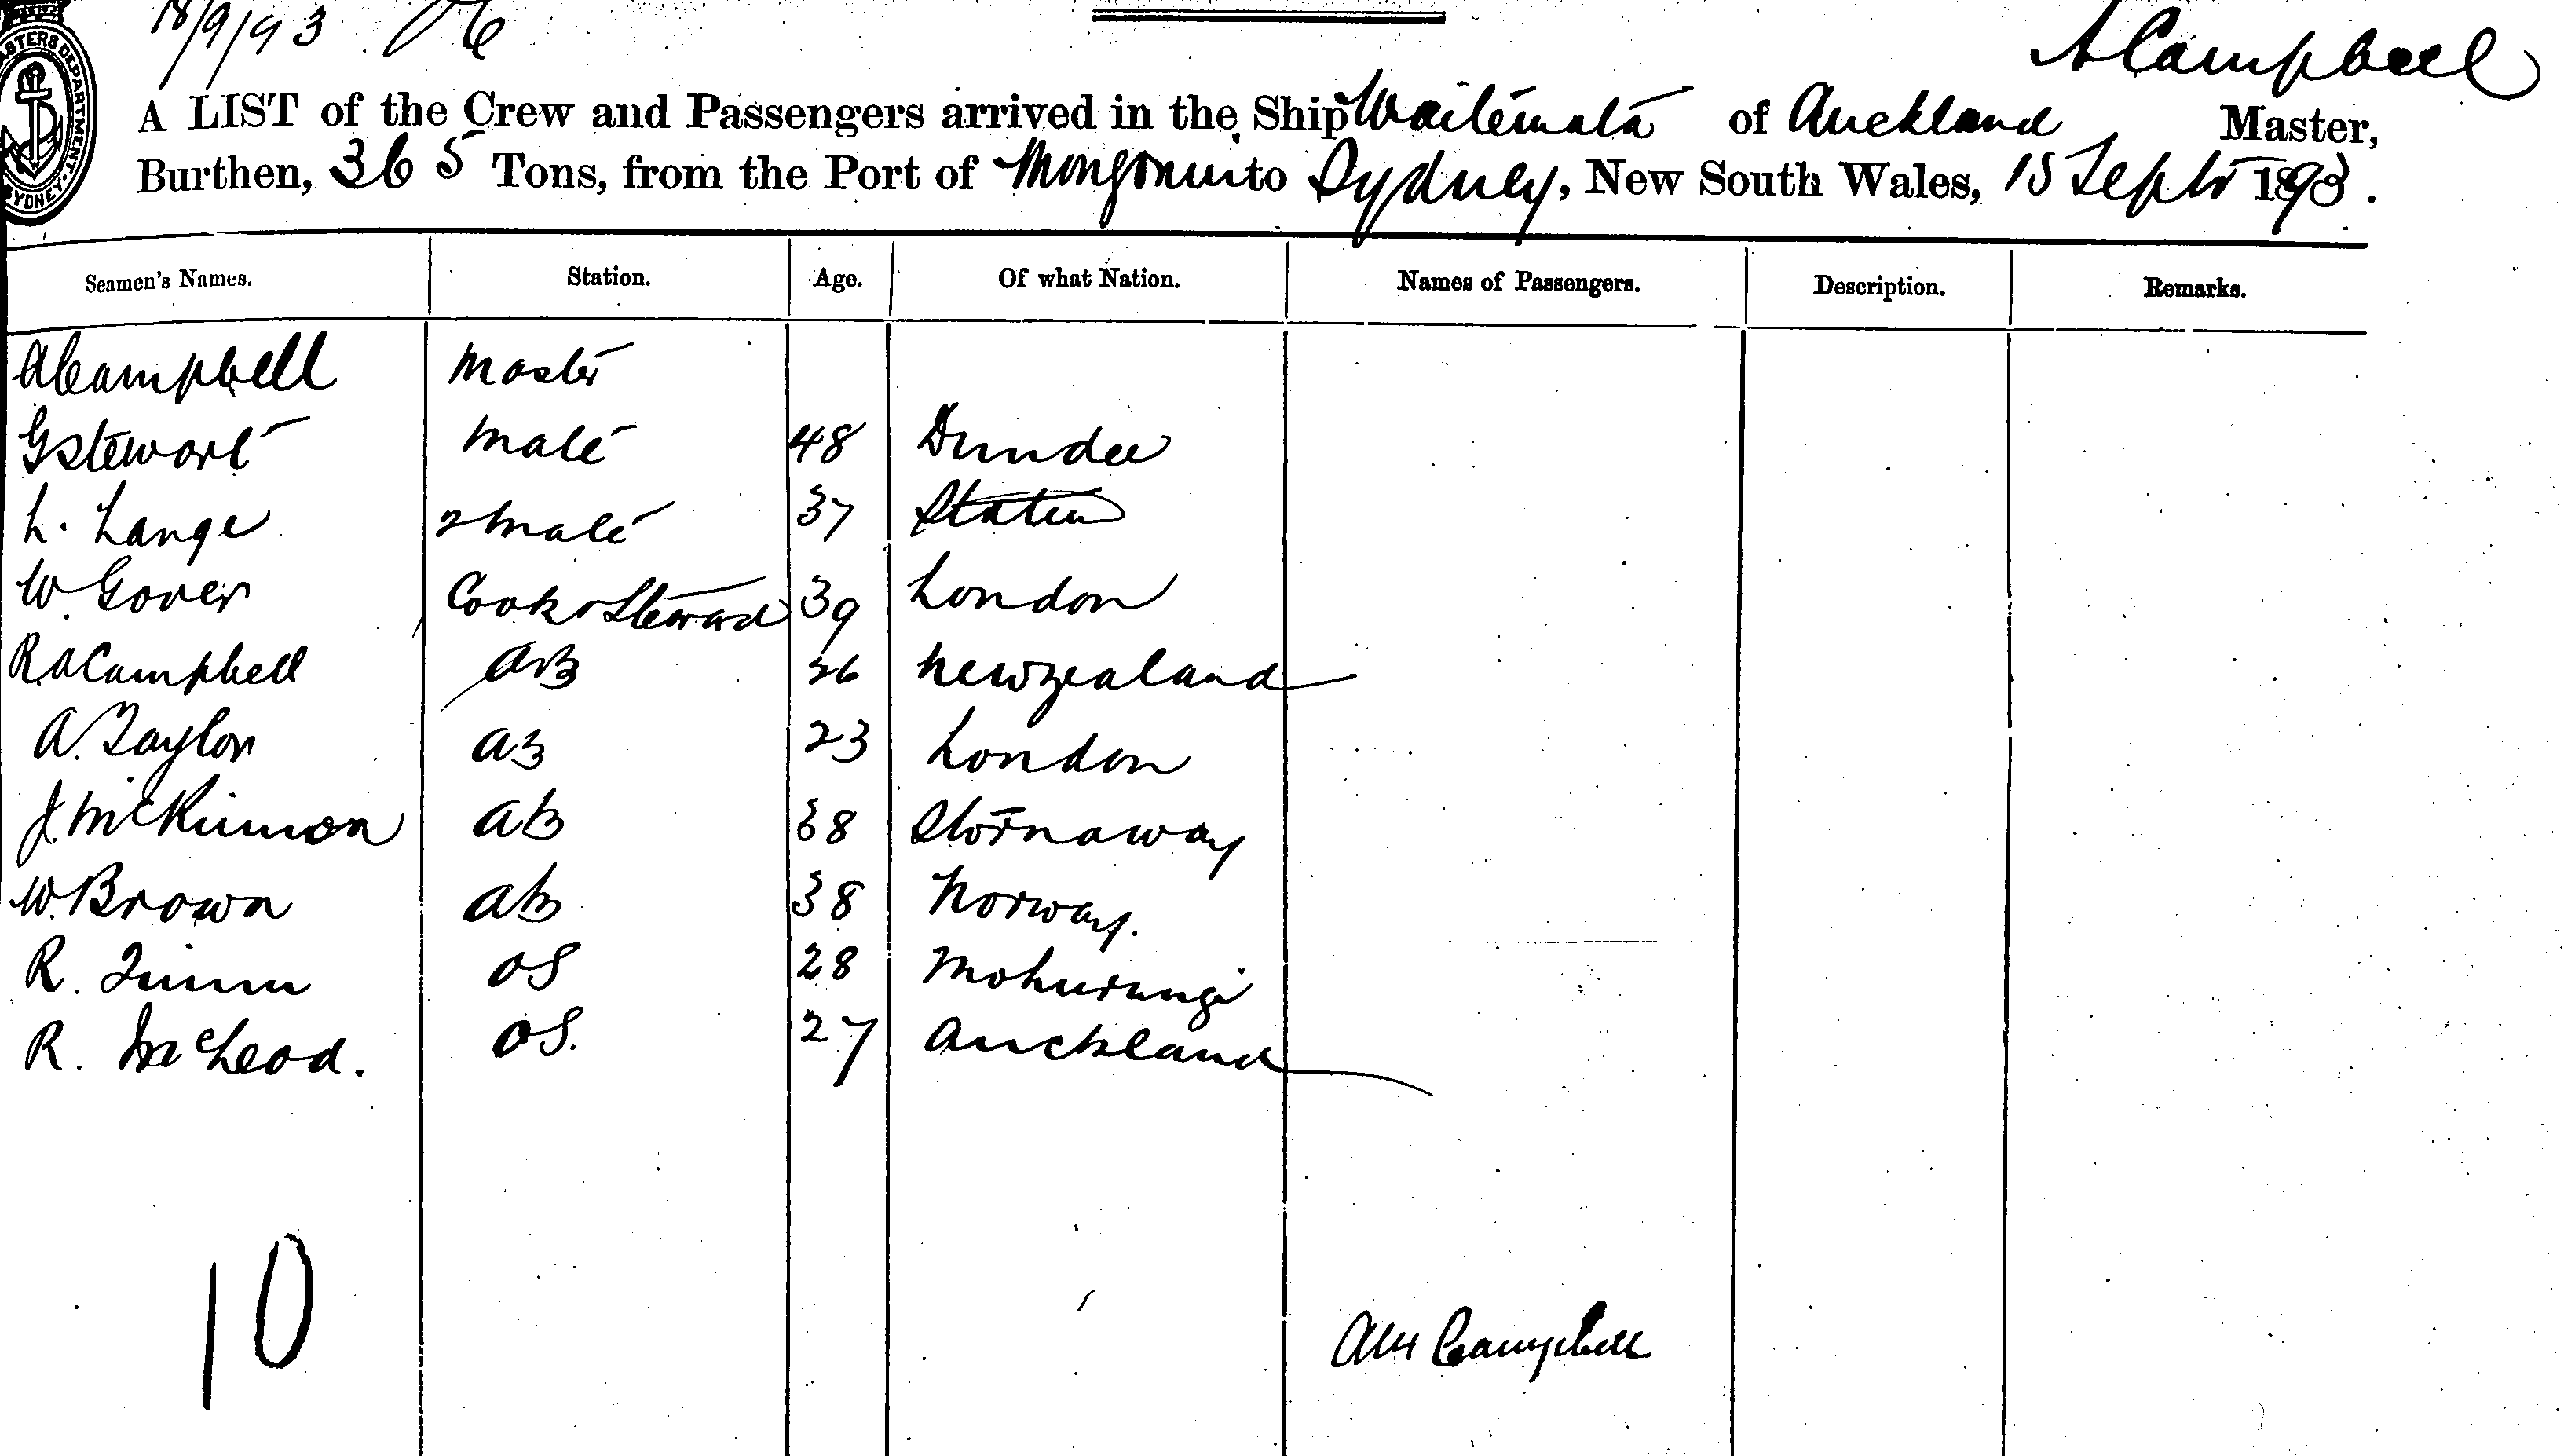 18/9/93
A Campbell
A LIST of the Crew and Passengers arrived in the Ship Waitemata of Auckland Master,
Burthen, 365 Tons, from the Port of Mongonui to Sydney, New South Wales, 15 Septr 1893.
Seamen's Names. Station. Age. Of what Nation. Names of Passengers. Description. Remarks.
A Campbell Master
G Stewart Mate 48 Dundee
L. Lange 2 Mate 37
W. Gover Cook & Steward 39 London
R A Campbell AB 26 New zealand
A. Taylor AB 23 London
J. McKinnon AB 38 Stornaway
W. Brown AB 38 Norway.
R. OS 28 Mohurangi
R. McLeod. OS. 27 Auckland
10
Alex Campbell